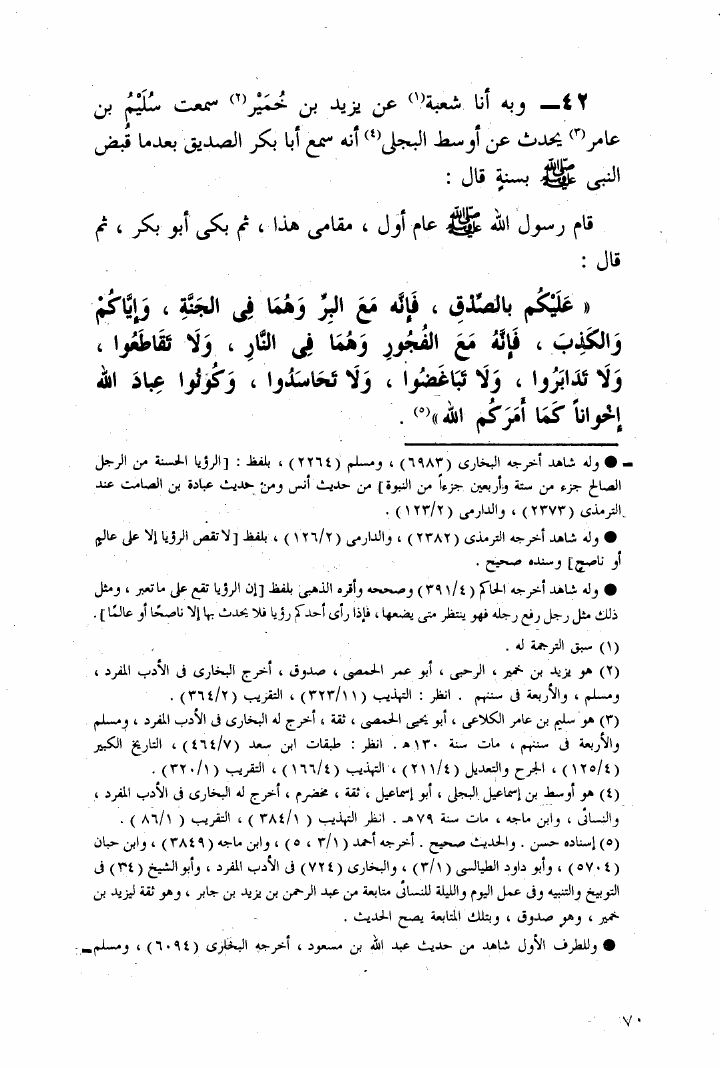 ٤٢ــ وبه أنا شعبة(١) عن يزيد بن خُمَيْر(٢) سمعت سُلَيْمُ بن
عامر(٣) يحدث عن أوسط البجلى(٤) أنه سمع أبا بكر الصديق بعدما قُبض
النبى ﷺ بسنةٍ قال :
قام رسول الله ﷺ عام أول ، مقامى هذا ، ثم بكى أبو بكر ، ثم
قال :
« عَلَيْكُم بالصِّدْقِ ، فَإنَّه مَعَ البِرِّ وَهُمَا فِى الجَنَّةِ ، وَإيَّاكُمْ
وَالكَذِبَ ، فَإنَّهُ مَعَ الفُجُورِ وَهُمَا فِى النَّارِ ، وَلَا تَقَاطَعُوا ،
وَلَا تَدَابَرُوا ، وَلَا تَبَاغَضُوا ، وَلَا تَحَاسَدُوا ، وَكُونُوا عِبادَ الله
إخْواناً كَمَا أَمَرَكُم الله»(٥) .
ــ ● وله شاهد أخرجه البخارى (٦٩٨٣) ، ومسلم (٢٢٦٤) ، بلفظ : [الرؤيا الحسنة من الرجل
الصالح جزء من ستة وأربعين جزءاً من النبوة] من حديث أنس ومن حديث عبادة بن الصامت عند
الترمذى (٢٣٧٣) ، والدارمى (١٢٣/٢) .
● وله شاهد أخرجه الترمذى (٢٣٨٢) ، والدارمى (١٢٦/٢) ، بلفظ [لا تقص الرؤيا إلا على عالمٍ
أو ناصحٍ] وسنده صحيح .
● وله شاهد أخرجه الحاكم (٣٩١/٤) وصححه وأقره الذهبى بلفظ [إن الرؤيا تقع على ما تعبر ، ومثل
ذلك مثل رجل رفع رجله فهو ينتظر متى يضعها ، فإذا رأى أحدكم رؤيا فلا يحدث بها إلا ناصحًا أو عالمًا] .
(١) سبق الترجمة له .
(٢) هو يزيد بن خمير ، الرحبى ، أبو عمر الحمصى ، صدوق ، أخرج البخارى فى الأدب المفرد ،
ومسلم ، والأربعة فى سننهم . انظر : التهذيب (٣٢٣/١١) ، التقريب (٣٦٤/٢) .
(٣) هو سليم بن عامر الكلاعى ، أبو يحيى الحمصى ، ثقة ، أخرج له البخارى فى الأدب المفرد ، ومسلم
والأربعة فى سننهم ، مات سنة ١٣٠هـ . انظر : طبقات ابن سعد (٤٦٤/٧) ، التاريخ الكبير
(١٢٥/٤) ، الجرح والتعديل (٢١١/٤) ، التهذيب (١٦٦/٤) ، التقريب (٣٢٠/١) .
(٤) هو أوسط بن إسماعيل البجلى ، أبو إسماعيل ، ثقة ، مخضرم ، أخرج له البخارى فى الأدب المفرد ،
والنسائى ، وابن ماجه ، مات سنة ٧٩هـ . انظر التهذيب (٣٨٤/١) ، التقريب (٨٦/١) .
(٥) إسناده حسن . والحديث صحيح . أخرجه أحمد (٣/١ ، ٥) ، وابن ماجه (٣٨٤٩) ، وابن حبان
(٥٧٠٤) ، وأبو داود الطيالسى (٣/١) ، والبخارى (٧٢٤) فى الأدب المفرد ، وأبو الشيخ (٣٤) فى
التوبيخ والتنبيه وفى عمل اليوم والليلة للنسائى متابعة من عبد الرحمن بن يزيد بن جابر ، وهو ثقة ليزيد بن
خمير ، وهو صدوق ، وبتلك المتابعة يصح الحديث .
● وللطرف الأول شاهد من حديث عبد الله بن مسعود ، أخرجه البخارى (٦٠٩٤) ، ومسلم ــ
٧٠